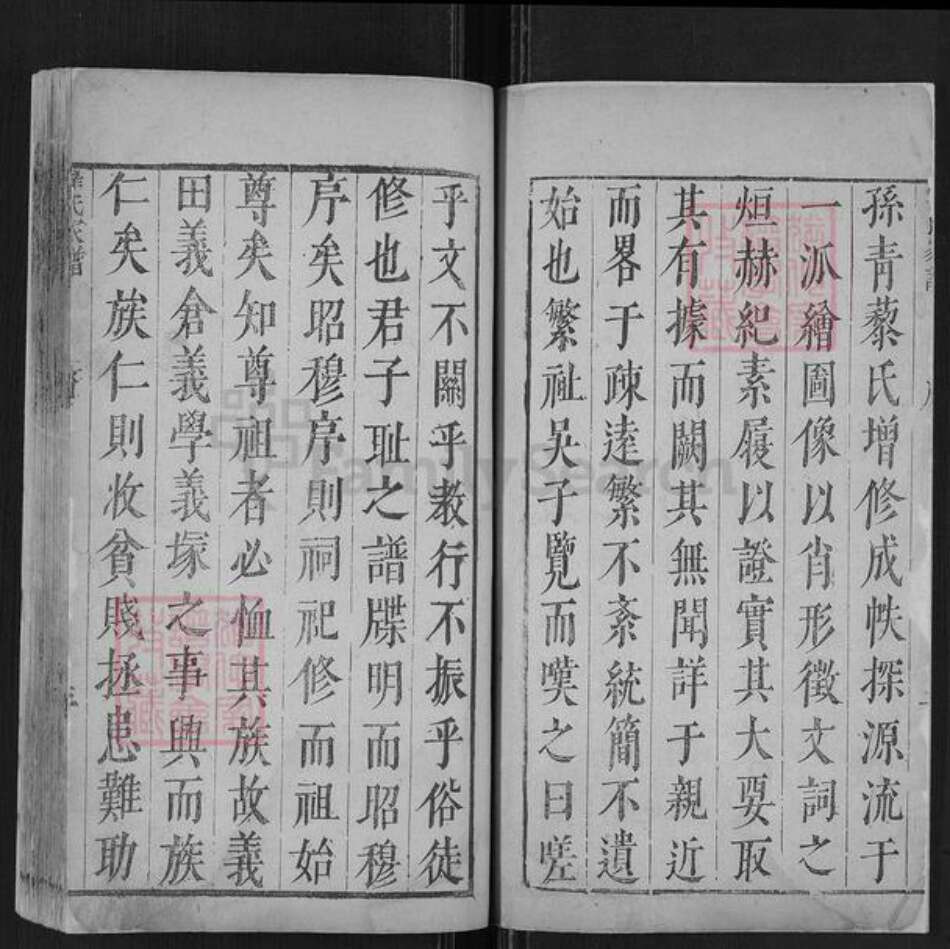 孫青藜氏增修成帙探源流于
一派繪圖像以肖形徵文詞之
烜赫紀素履以證實其大要取
其有據而闕其無聞詳于親近
而畧于疎逺繁不紊統簡不遺
始也繁祉吳子覽而嘆之曰嗟
乎文不關乎教行不振乎俗徒
修也君子耻之譜牒明而昭穆
序矣昭穆序則祠祀修而祖始
尊矣知尊祖者必恤其族故義
田義倉義學義塚之事興而族
仁矣族仁則收貧賤拯患難助
氏家譜
FamilySearch